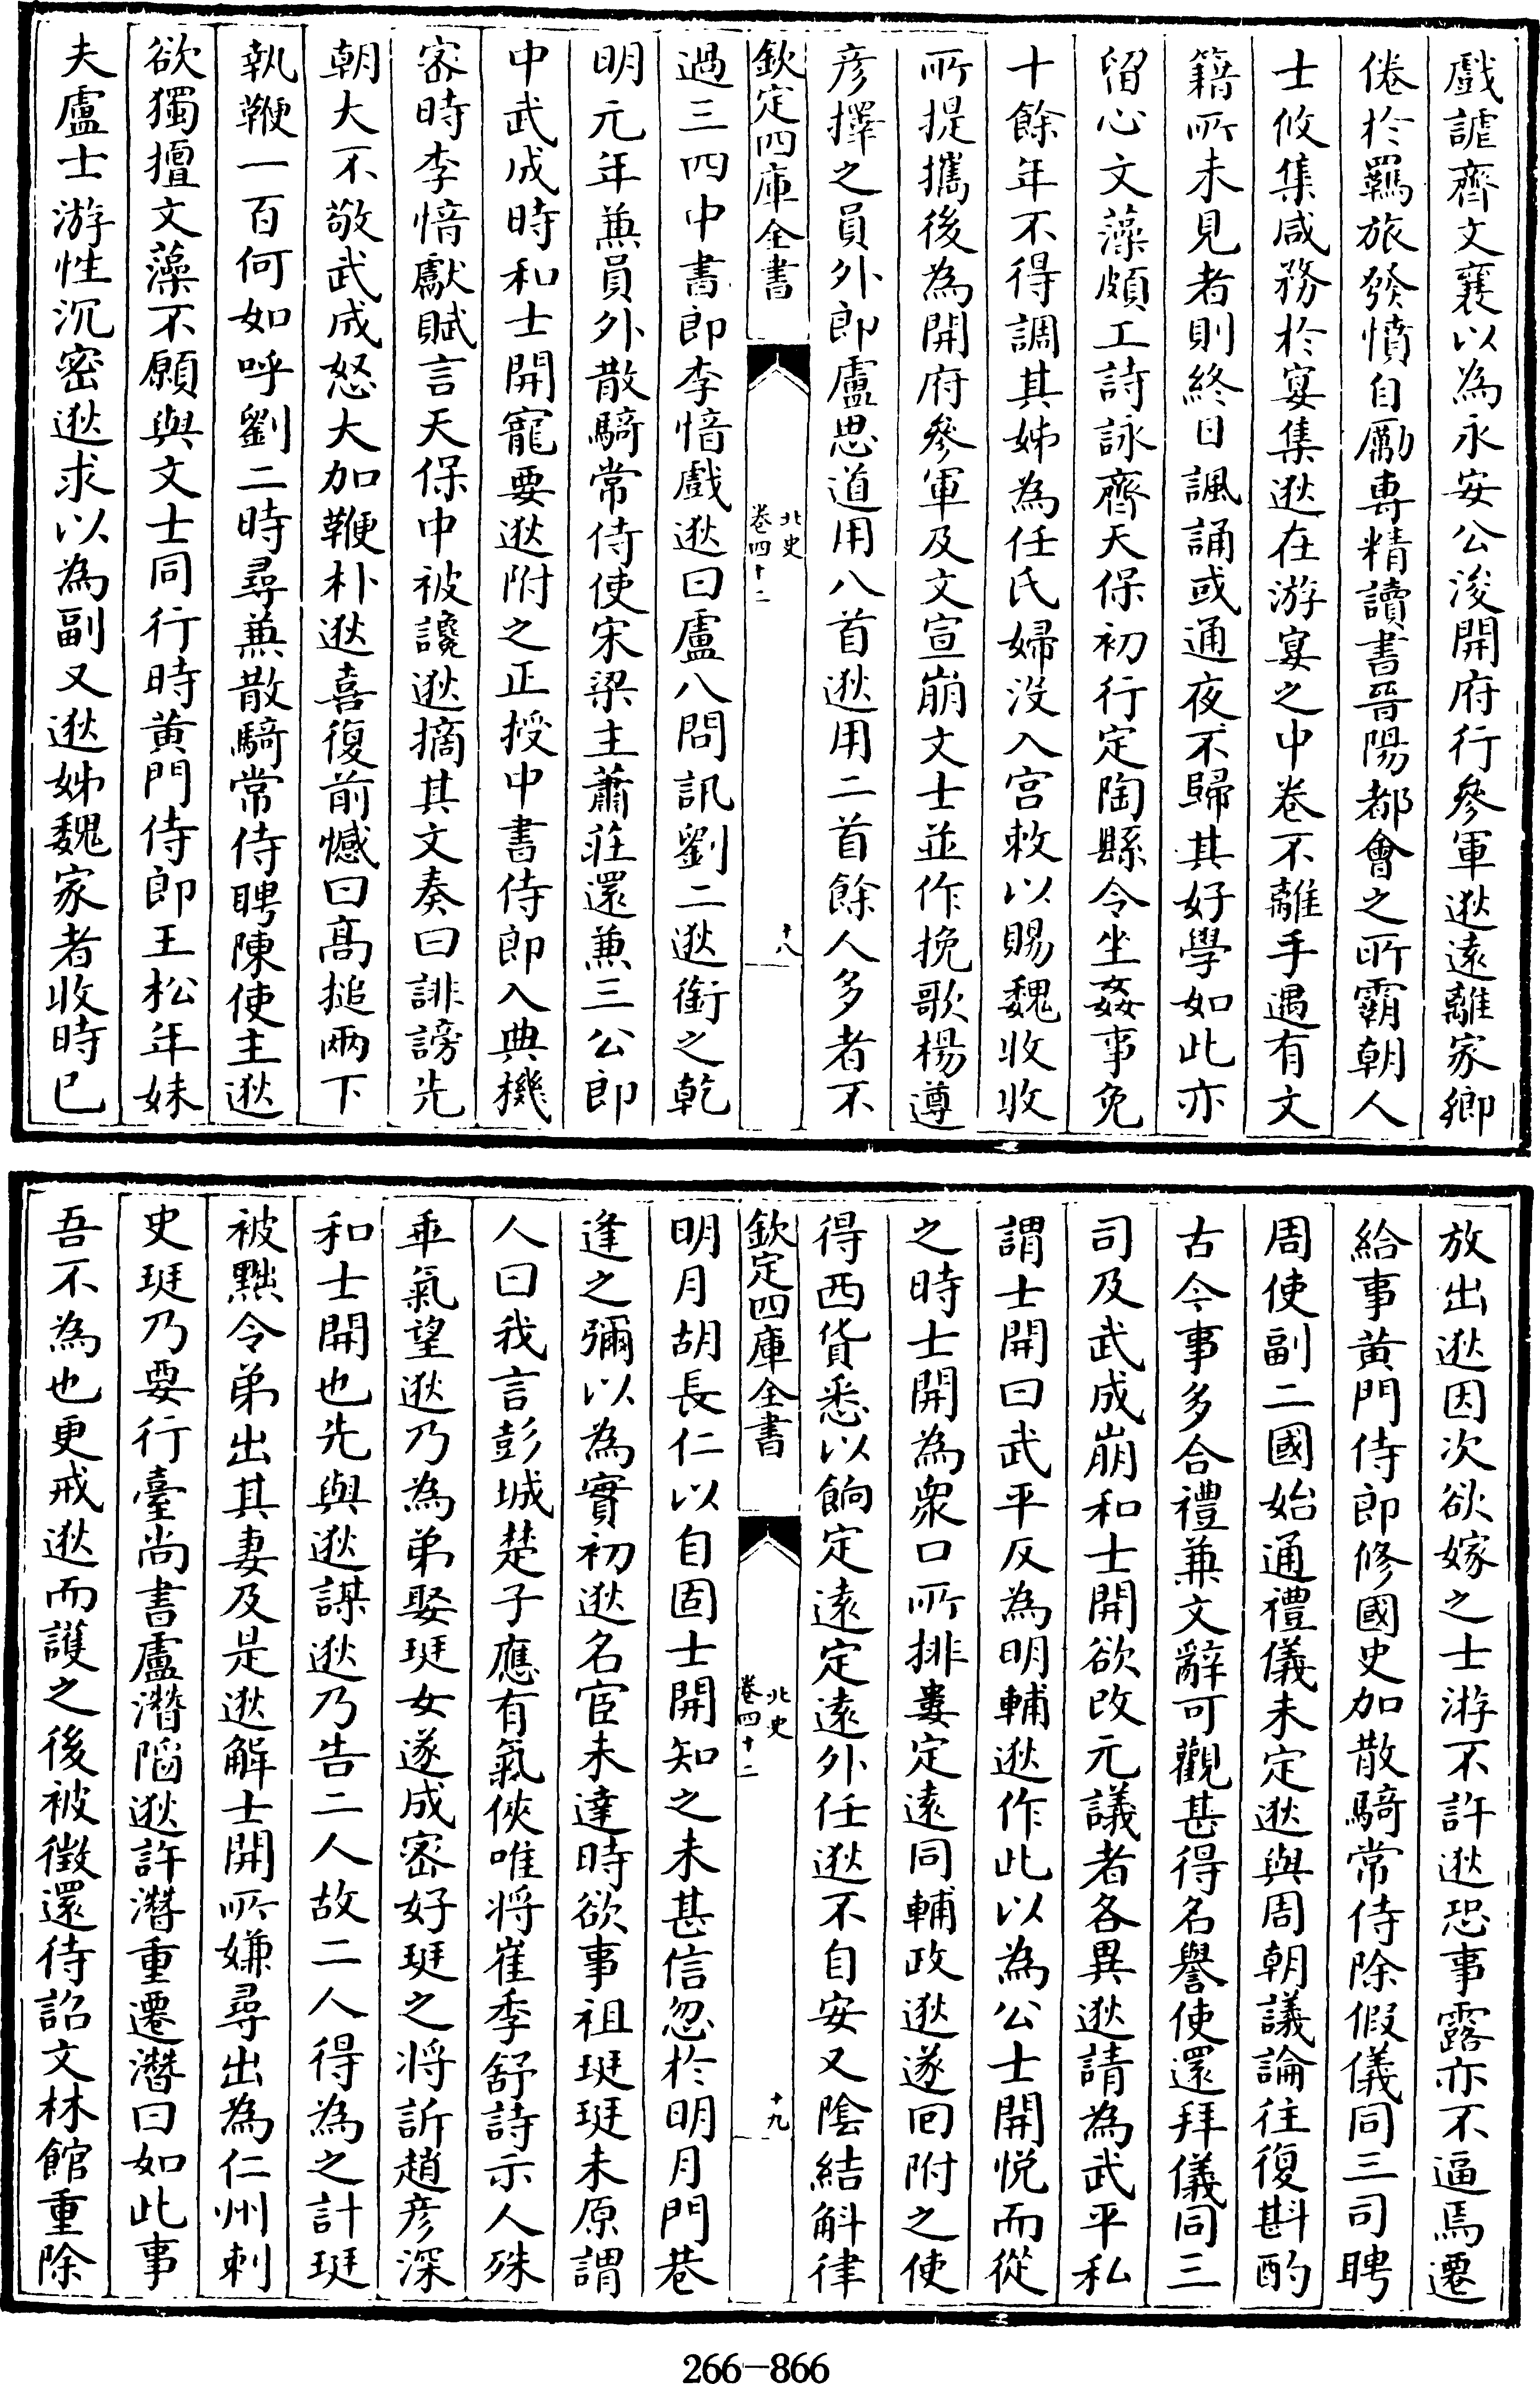 戲謔齊文襄以為永安公浚開府行參軍逖遠離家鄉
倦於羈旅發憤自勵専精讀書晉陽都會之所霸朝人
士攸集咸務於宴集逖在游宴之中卷不離手遇有文
籍所未見者則終日諷誦或通夜不歸其好學如此亦
留心文藻頗工詩詠齊天保初行定陶縣令坐姦事免
十餘年不得調其姊為任氏婦沒入宫敕以賜魏收收
所提攜後為開府參軍及文宣崩文士並作挽歌楊遵
彦擇之員外郎盧思道用八首逖用二首餘人多者不
欽定四庫全書
北史
卷四十二
十八
過三四中書郎李愔戲逖曰盧八問訊劉二逖銜之乾
明元年兼員外散騎常侍使宋梁主蕭莊還兼三公郎
中武成時和士開寵要逖附之正授中書侍郎入典機
宻時李愔獻賦言天保中被讒逖摘其文奏曰誹謗先
朝大不敬武成怒大加鞭朴逖喜復前憾曰髙搥兩下
執鞭一百何如呼劉二時尋兼散騎常侍聘陳使主逖
欲獨擅文藻不願與文士同行時黄門侍郎王松年妹
夫盧士游性沉密逖求以為副又逖姊魏家者收時已
放出逖因次欲嫁之士游不許逖恐事露亦不逼焉遷
給事黄門侍郎修國史加散騎常侍除假儀同三司聘
周使副二國始通禮儀未定逖與周朝議論往復斟酌
古今事多合禮兼文辭可觀甚得名譽使還拜儀同三
司及武成崩和士開欲改元議者各異逖請為武平私
謂士開曰武平反為明輔逖作此以為公士開悅而從
之時士開為衆口所排婁定遠同輔政逖遂囘附之使
得西貨悉以餉定遠定遠外任逖不自安又陰結斛律
欽定四庫全書
北史
卷四十二
十九
明月胡長仁以自固士開知之未甚信忽於明月門巷
逢之彌以為實初逖名宦未達時欲事祖珽珽未原謂
人曰我言彭城楚子應有氣俠唯將崔季舒詩示人殊
乖氣望逖乃為弟娶珽女遂成密好珽之將訴趙彦深
和士開也先與逖謀逖乃告二人故二人得為之計珽
被黜令弟出其妻及是逖解士開所嫌尋出為仁州刺
史珽乃要行臺尚書盧潛陷逖許潛重遷潛曰如此事
吾不為也更戒逖而護之後被徵還待詔文林館重除
266-866